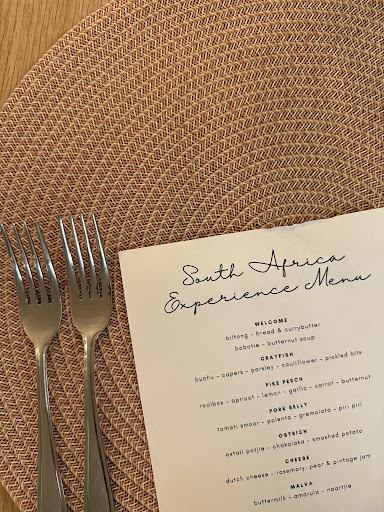 South Africa
Experience Menu
WELCOME
biltong - bread & currybutter
bobotie - butternut soup
CRAYFISH
buchu - capers - parsley - cauliflower - pickled bits
PIKE PERCH
rooibos - apricot - lemon - garlic - carrot - butternut
PORK BELLY
tamati smoor - polenta - gremolata - piri piri
OSTRICH
oxtail potjie - chakalaka - smashed potato
CHEESE
dutch cheese - rosemary, pear & pinotage jam
MALVA
buttermilk - amarula - naartjie